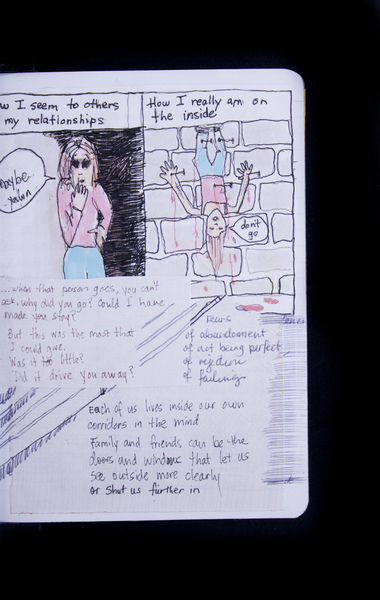 w I seem to others
my relationships
How I really am on
the inside
maybe
yawn
don't
go
...when that person goes, you can't
ask, why did you go? Could I have
made you stay?
But this was the most that
I could give.
Was it too little?
Did it drive you away?
Fears
of abandonment
of not being perfect
of rejection
of failing
Each of us lives inside our own
corridors in the mind
Family and friends can be the
doors and windows that let us
see outside more clearly
or shut us further in